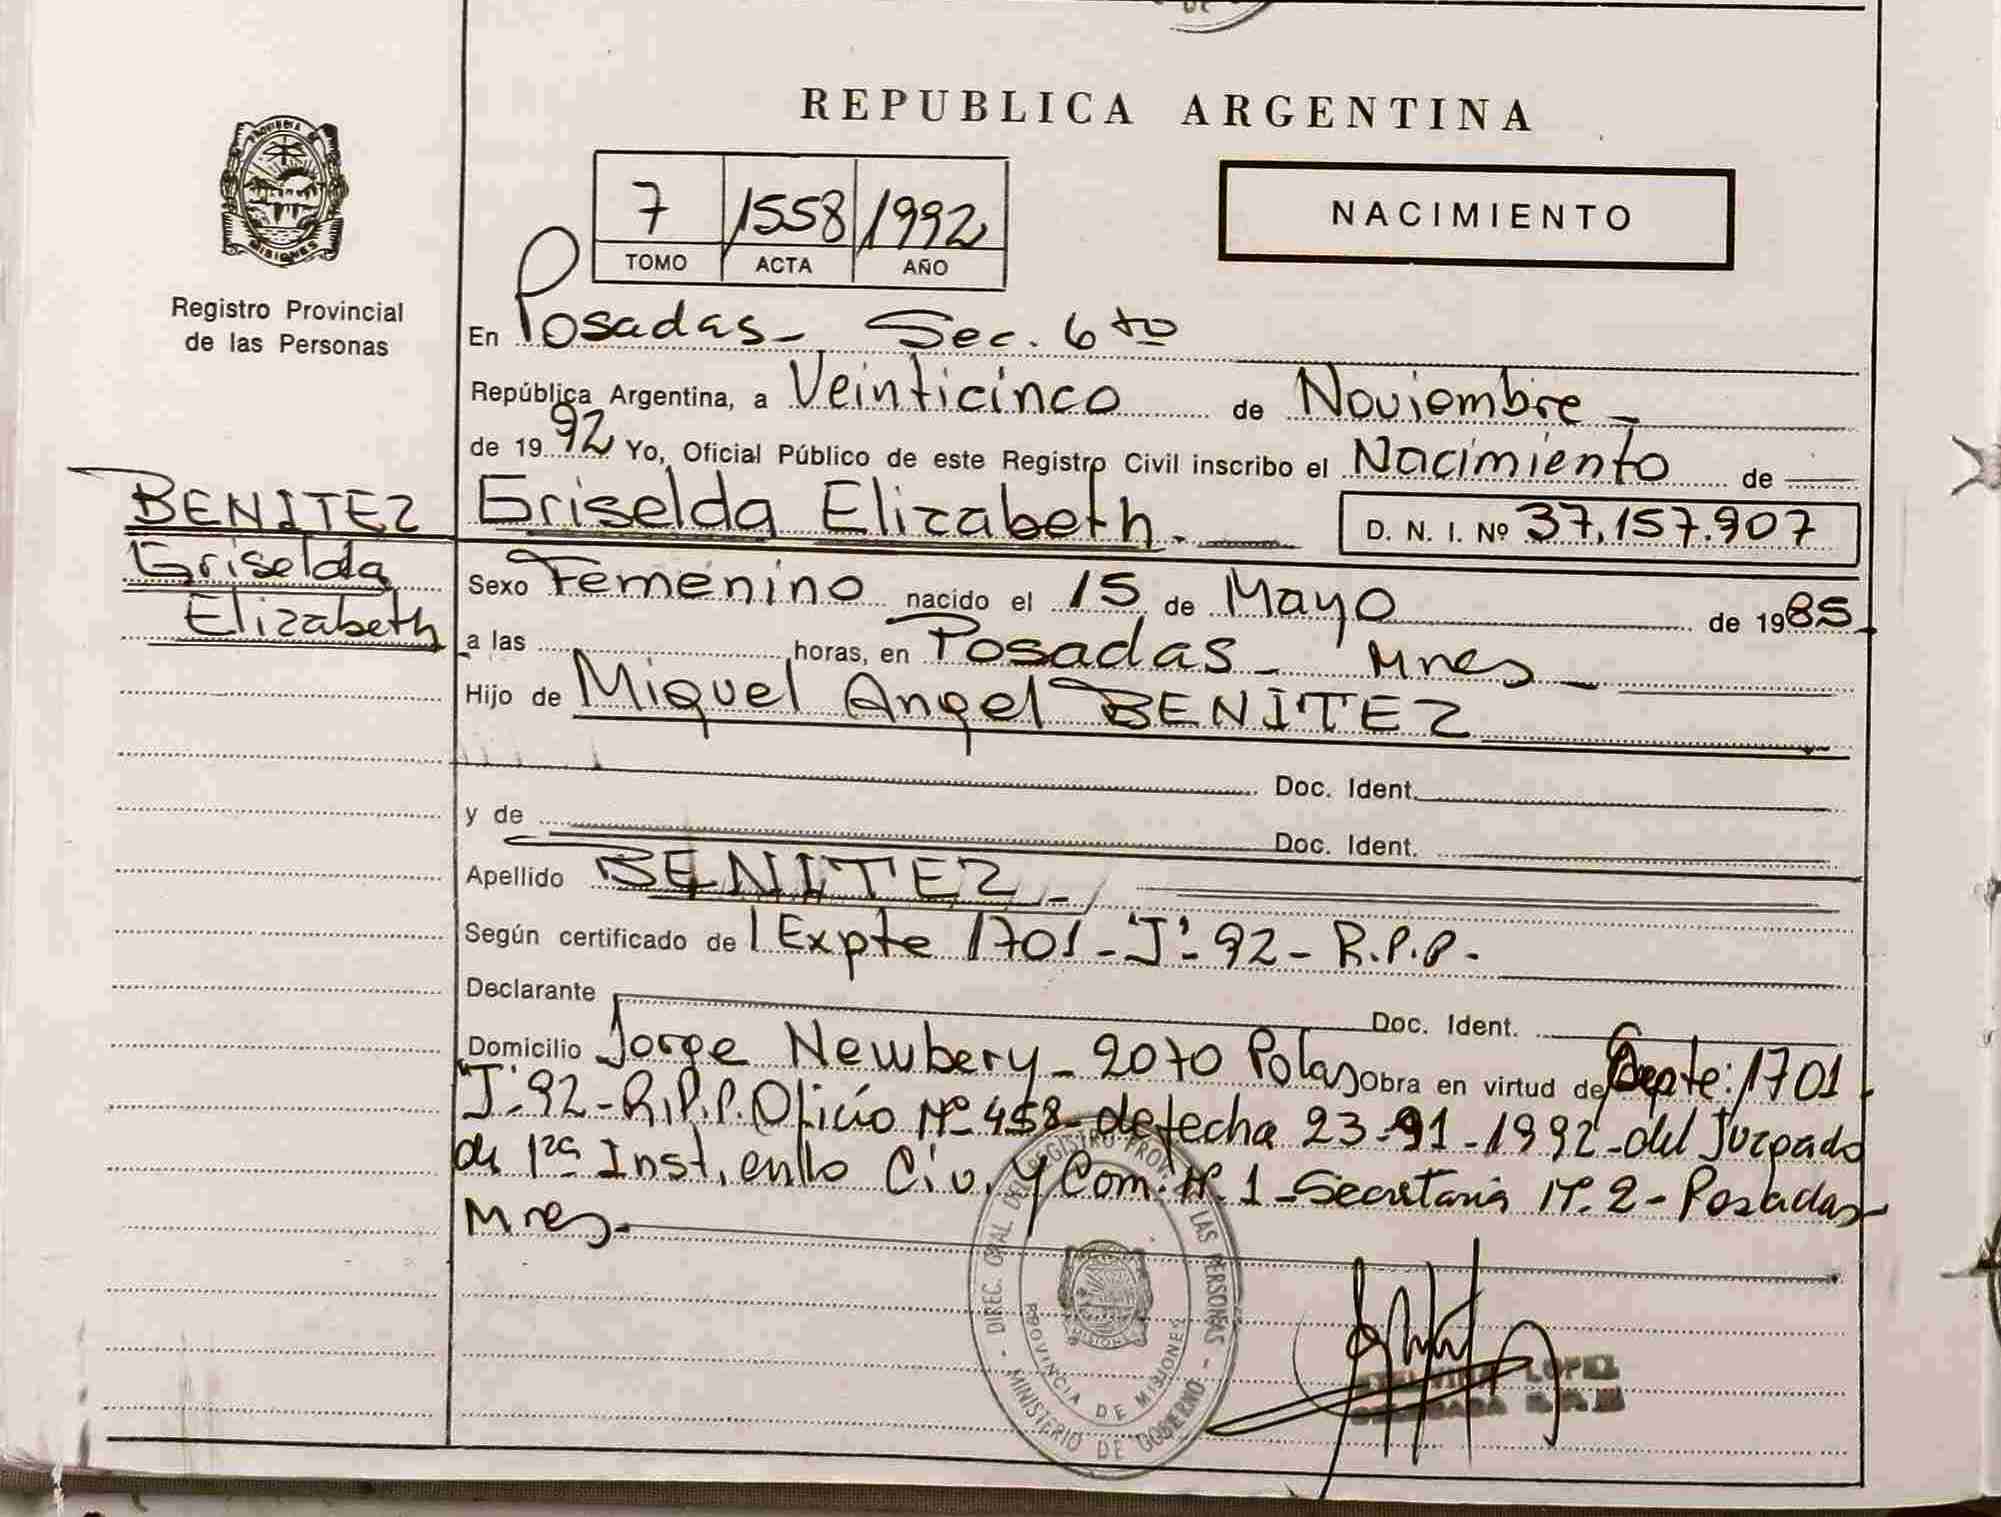 REPUBLICA ARGENTINA
7 1558 1992
TOMO ACTA AÑO
NACIMIENTO
PROVINCIA DE
MISIONES
Registro Provincial
de las Personas
BENITEZ
Griselda
Elizabeth
En Posadas - Sec. 6to
República Argentina, a Veinticinco de Noviembre -
de 1992 Yo, Oficial Público de este Registro Civil inscribo el Nacimiento de
Griselda Elizabeth. D. N. I. Nº 37.157.907
Sexo Femenino nacido el 15 de Mayo de 1985
a las horas, en Posadas - Mnes -
Hijo de Miguel Angel BENITEZ
Doc. Ident.
y de Doc. Ident.
Apellido BENITEZ -
Según certificado de Expte 1701 - "J" - 92 - R.P.P. -
Declarante Doc. Ident.
Domicilio Jorge Newbery - 2070 Obra en virtud de Expte: 1701
"J" - 92 - R.P.P. Oficio Nº 458 - de fecha 23 - 11 - 1992 - del Juzgado
de 1ra Inst. en lo Civ. y Com. Nº. 1 - Secretaria Nº. 2 - Posadas -
Mnes. -
DIREC. GRAL DEL REGISTRO PROV. LAS PERSONAS - MINISTERIO DE GOBIERNO -
PROVINCIA DE MISIONES
MISIONES
LOPEZ